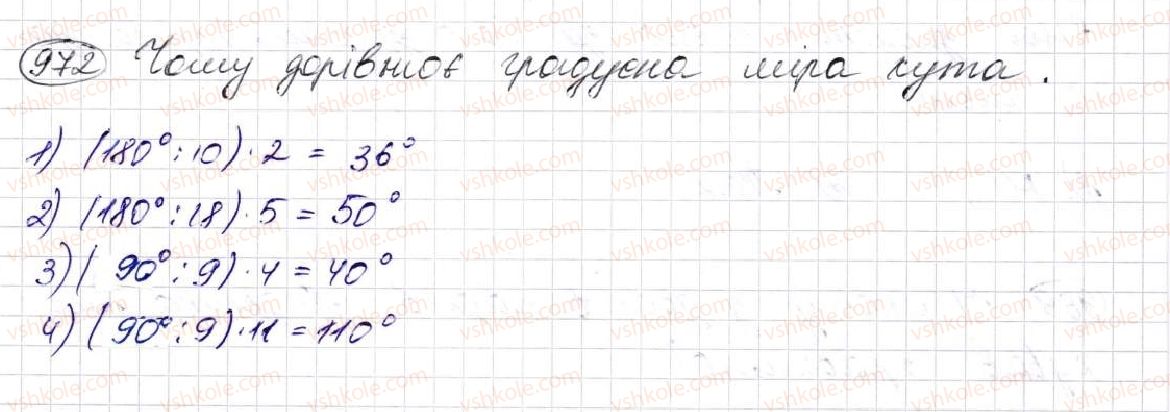 972 Чому дорівнює градусна міра кута.
1) (180° : 10) · 2 = 36°
2) (180° : 18) · 5 = 50°
3) ( 90° : 9) · 4 = 40°
4) ( 90° : 9) · 11 = 110°